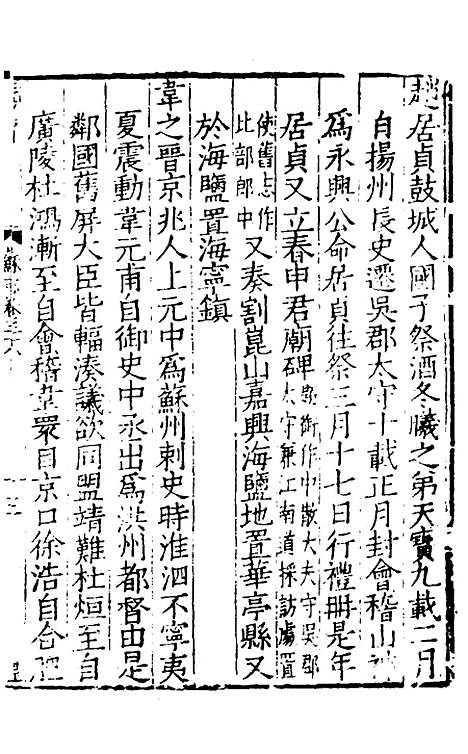 趙居貞鼓城人國子祭酒冬曦之弟天寶九載二月
自揚州長史遷吳郡太守十載正月封會稽山神
爲永興公命居貞往祭三月十七日行禮冊是年
居貞又立春申君廟碑題銜作中散大夫守吳郡太守兼江南道採訪處置
使舊志作比部郎中又奏割崑山嘉興海鹽地置華亭縣又
於海鹽置海寧鎮
韋之晉京兆人上元中爲蘇州刺史時淮泗不寧夷
夏震動韋元甫自御史中丞出爲洪州都督由是
鄰國舊屏大臣皆輻湊議欲同盟靖難杜烜至自
廣陵杜鴻漸至自會稽韋睘自京口徐浩自合肥